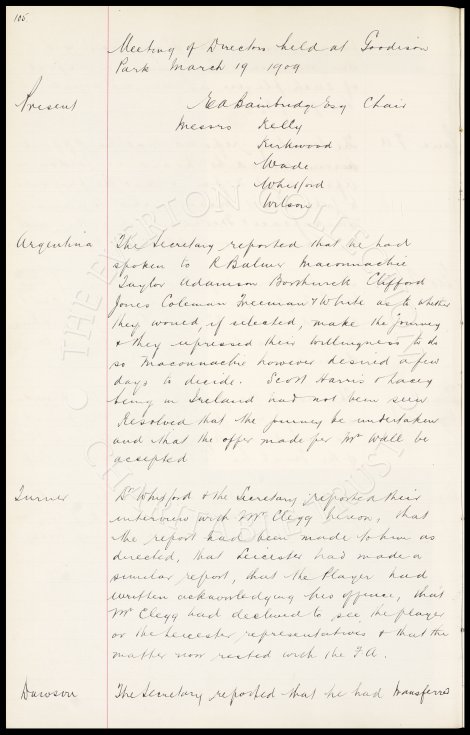 105
Meeting of Directors held at Goodison
Park March 19 1909
Present E A Bainbridge Esq Chair
Messrs Kelly
Kirkwood
Wade
Whitford
Wilson
Argentina The Secretary reported that he had
spoken to R Balmer Maconnachie
Taylor Adamson Borthwick Clifford
Jones Coleman Freeman & White as to whether
they would, if selected, make the journey
& they expressed their willingness to do
so Maconnachie however desired a few
days to decide. Scott Harris &
being in Ireland had not been seen
Resolved that the journey be undertaken
and that the offer made per Mr Wall be
accepted
Turner Dr Whitford & the Secretary reported their
interview with Mr Clegg, that
the report had been made to him as
directed, that Leicester had made a
similar report, that the Player had
written acknowledging his offence, that
Mr Clegg had declined to see the player
or the Leicester representatives & that the
matter now rested with the F.A.
Dawson The Secretary reported that he had transferred
THE EVERTON COLLECTION
CHARITABLE TRUST